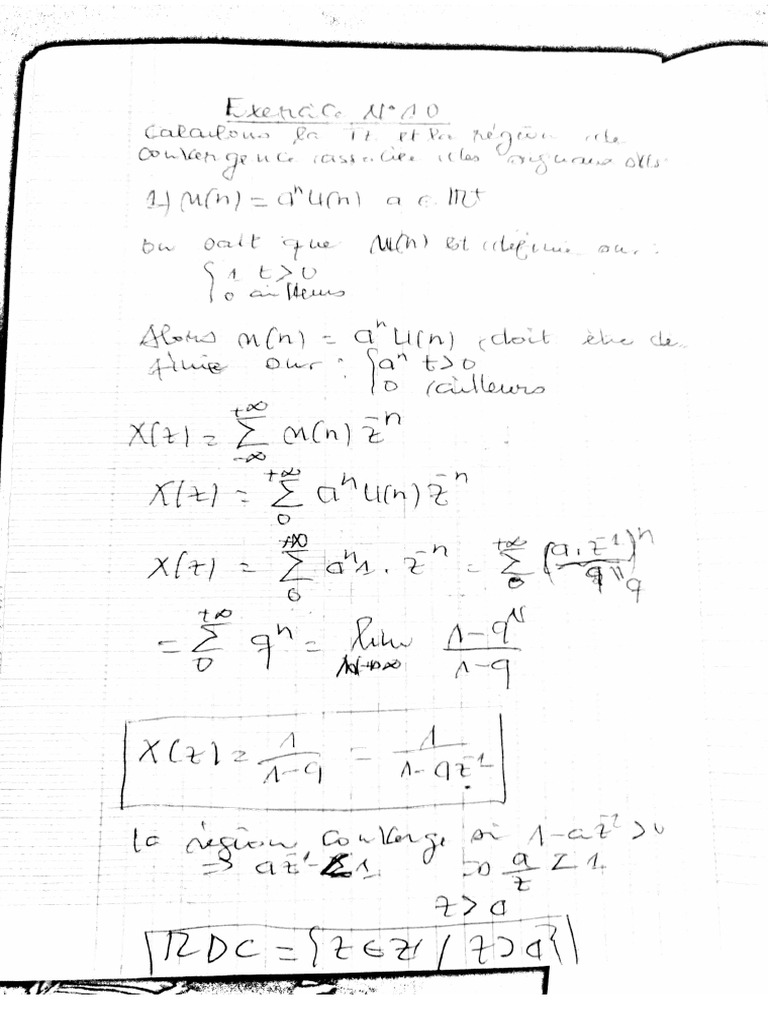 Exercice N°10
Calculons la TZ et la région de
convergence associée des signaux
1) x(n) = aⁿ U(n) a ∈ ℝ⁺
on sait que U(n) est définie sur :
{ 1 t>0
0 ailleurs
Alors x(n) = aⁿ U(n) doit être dé-
finie sur : { aⁿ t>0
0 ailleurs
X(z) = Σ_{-∞}^{+∞} x(n) z⁻ⁿ
X(z) = Σ_{0}^{+∞} aⁿ U(n) z⁻ⁿ
X(z) = Σ_{0}^{+∞} aⁿ 1 . z⁻ⁿ = Σ_{0}^{+∞} (a.z⁻¹)ⁿ q
= Σ_{0}^{+∞} qⁿ = lim_{N→+∞} (1-q^N)/(1-q)
X(z) = 1/(1-q) = 1/(1-az⁻¹)
la région converge si 1-az⁻¹ > 0
⇒ az⁻¹ < 1 ⇒ a/z < 1
z > a
RDC = {z ∈ Z / z > a}